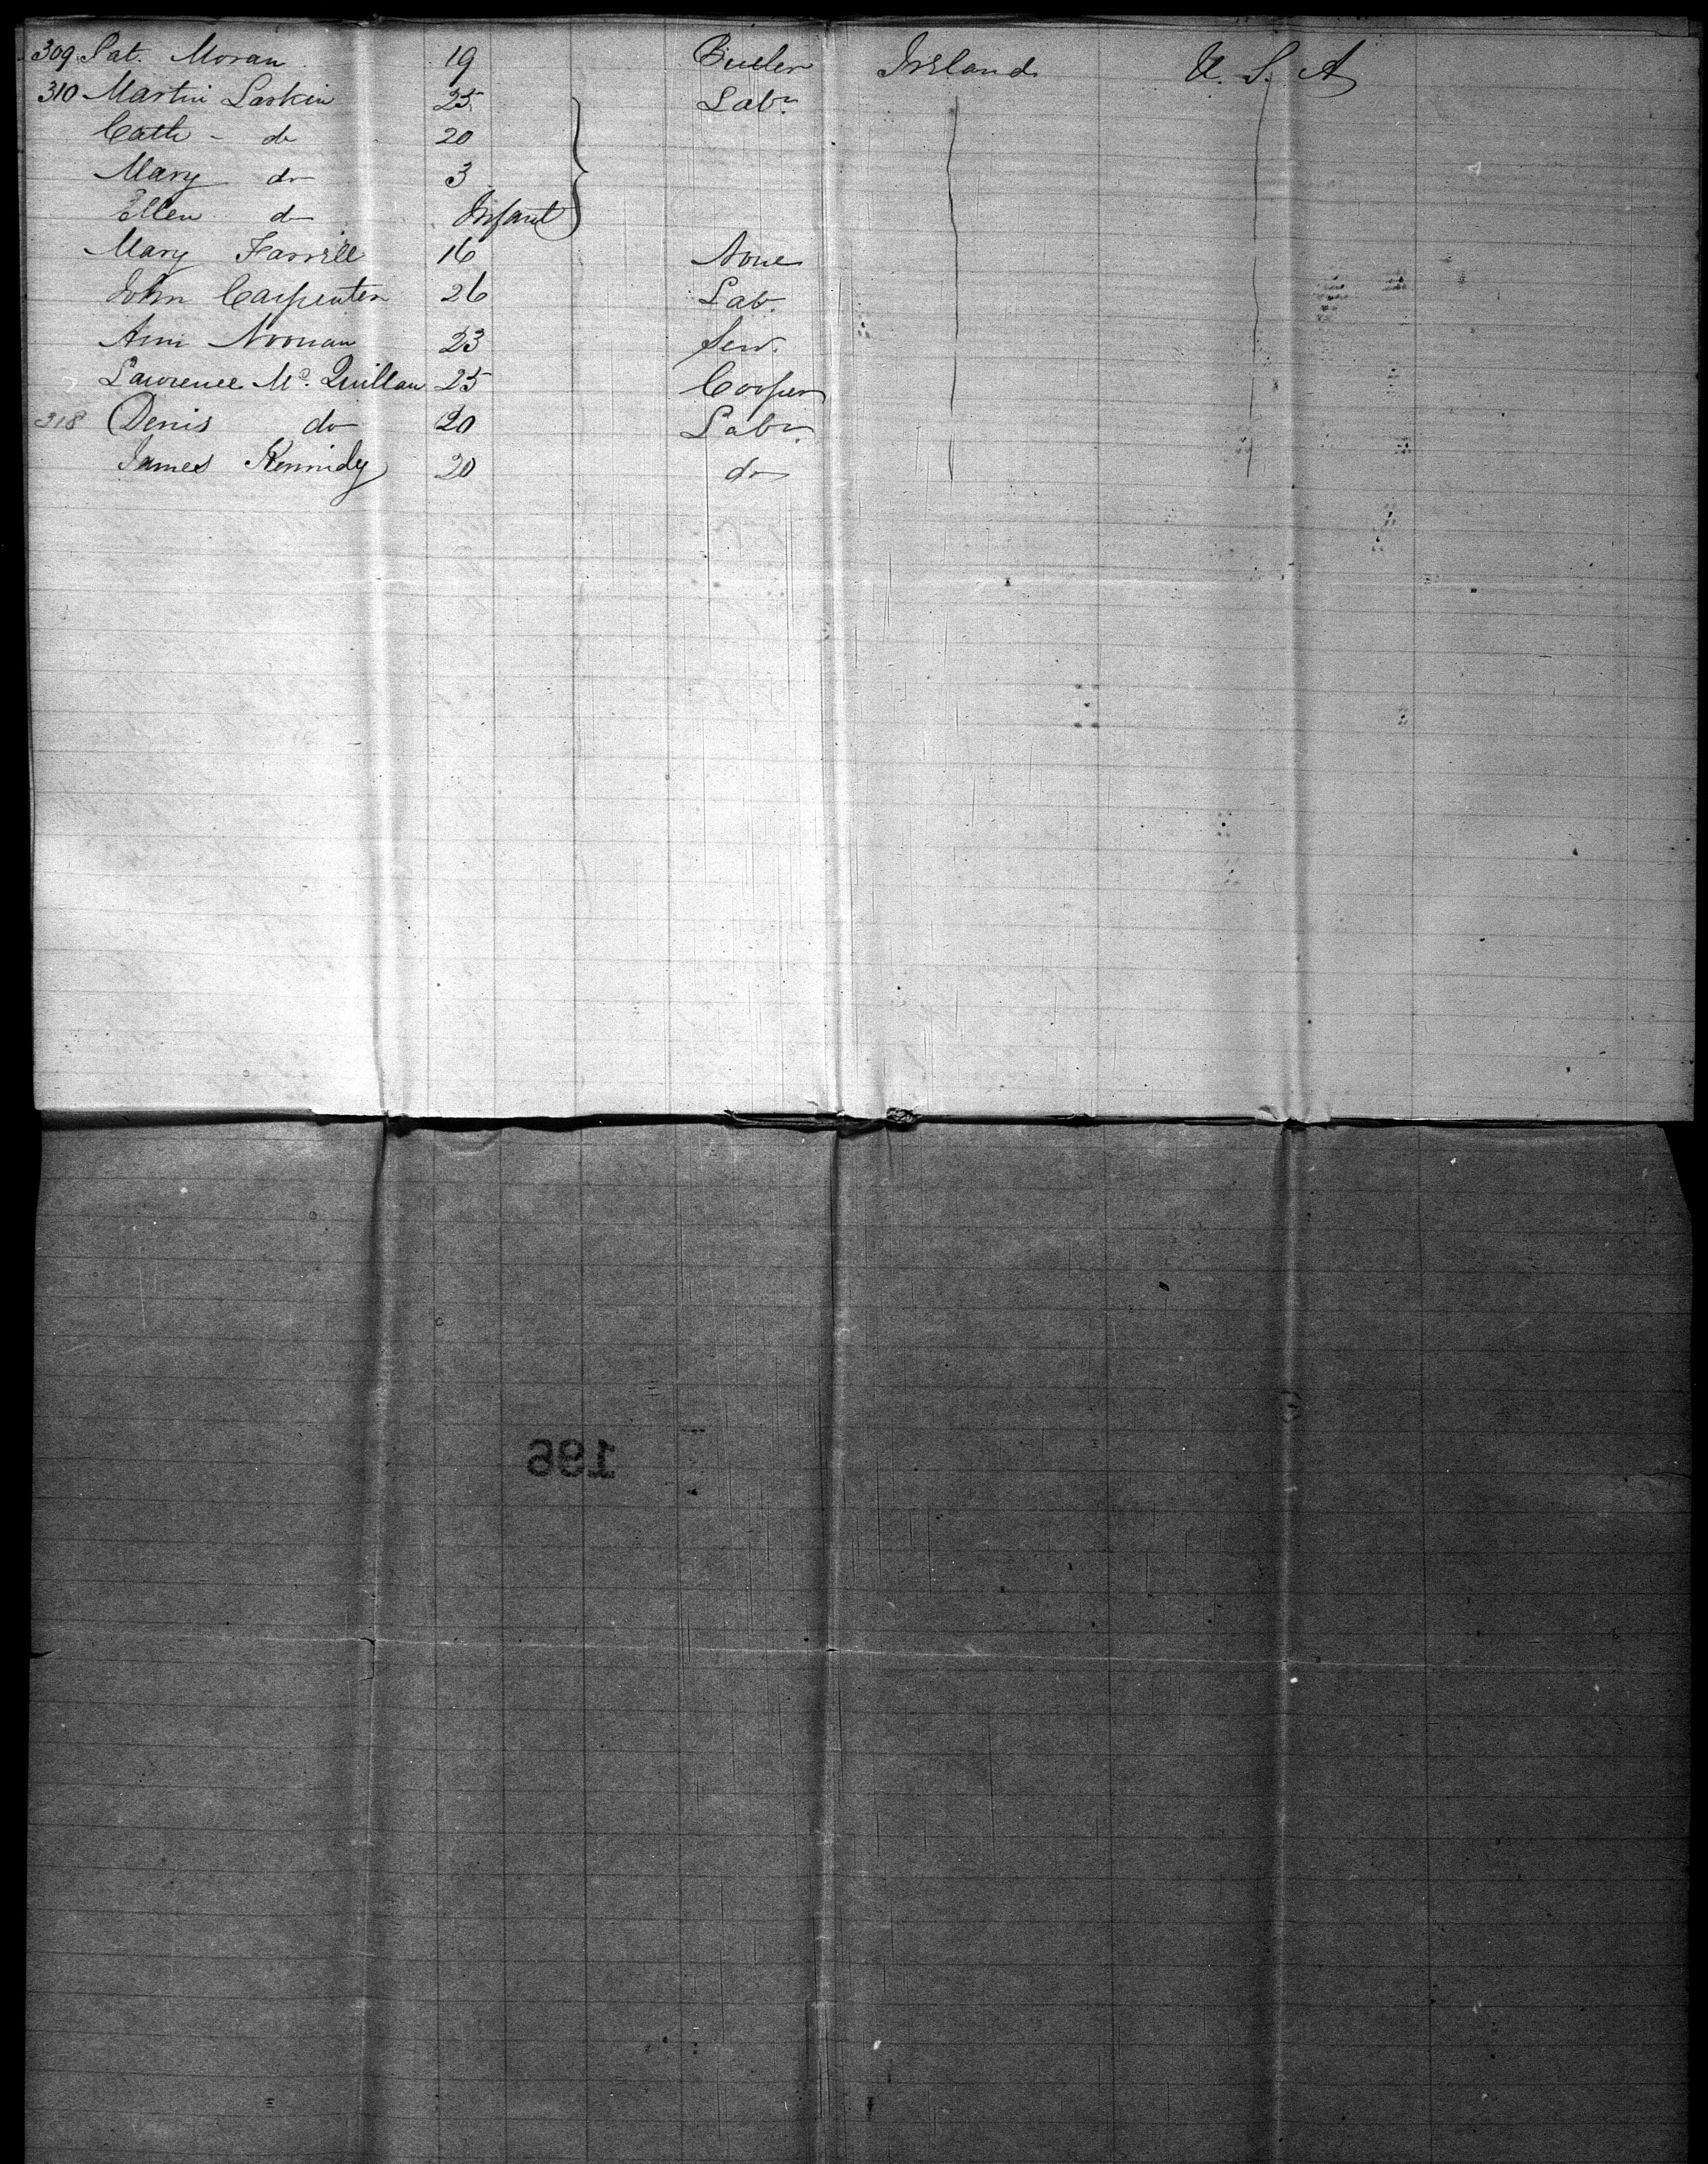 309 Pat. Moran 19 Butler Ireland U. S. A
310 Martin Larkin 25 Labr
Cath - do 20
Mary do 3
Ellen do Infant
Mary Farrell 16 None
John Carpenter 26 Lab.
Ann Noonan 23 Serv.
Lawrence Mc. Quillan 25 Cooper
318 Denis do 20 Labr
James Kennidy 20 do
196